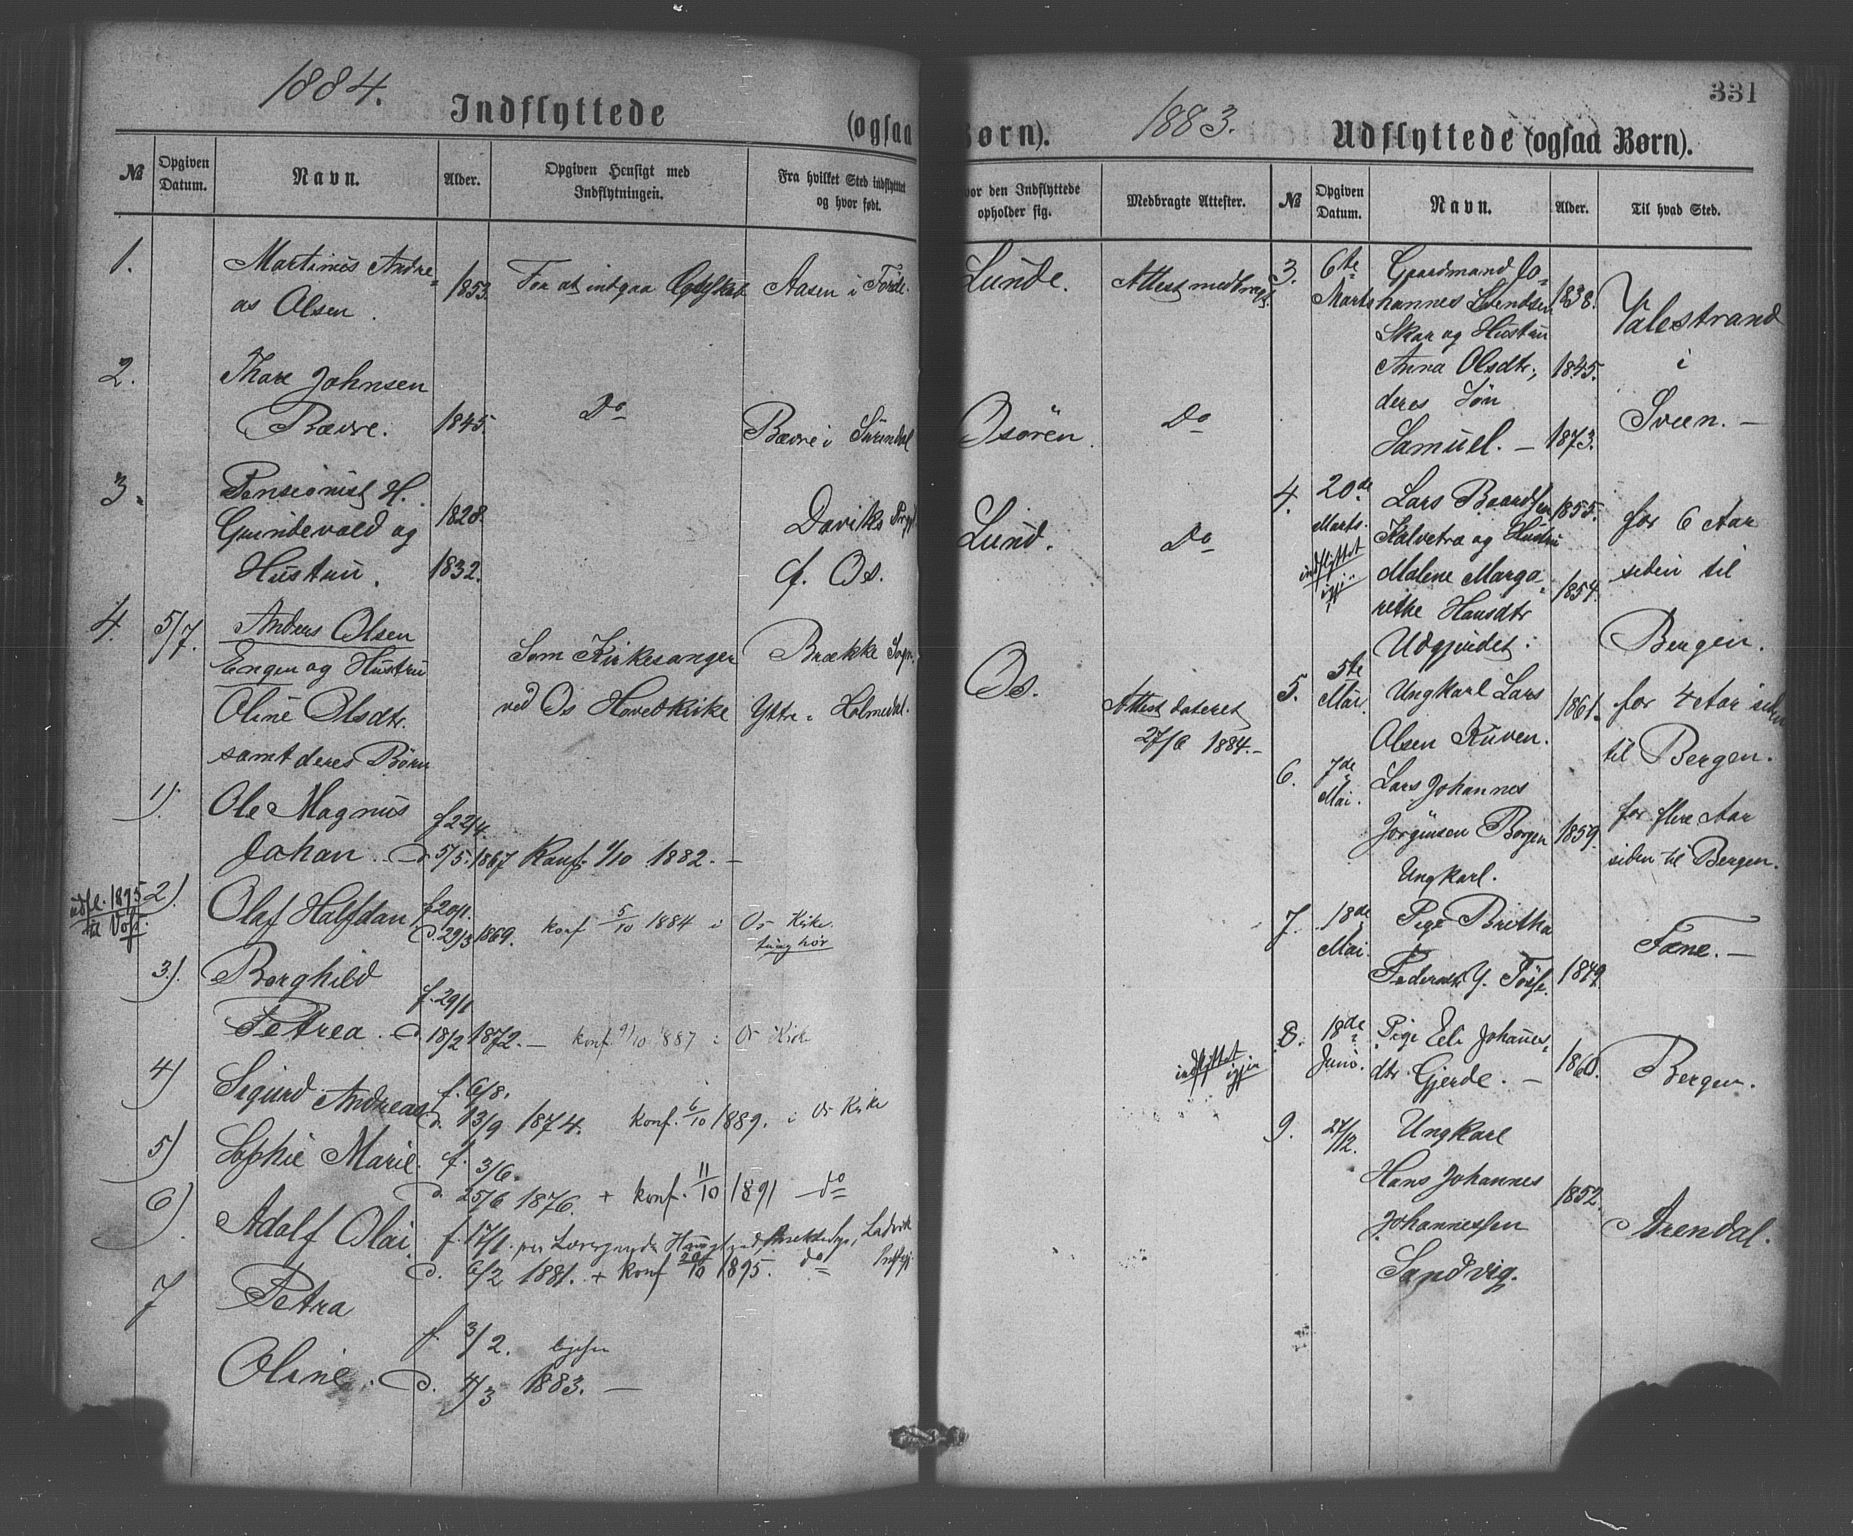 1884.
Indflyttede
(ogsaa Børn).
№
Opgiven Datum.
Navn.
Alder.
Opgiven Hensigt med Indflytningen.
Fra hvilket Sted indflyttet og hvor født.
vor den Indflyttede opholder sig.
Medbragte Attester.
1.
Martinus Andre-
as Olsen.
1853.
For at indgaa Egteskab
Aasen i Förde.
Lunde.
Attest medbragt.
2.
Thore Johnsen
Bævre.
1845.
Do
Bævre i Surendal
Osören.
Do
3.
Pensionist H.
Grindevald og
Hustru.
1828.
1832.
Daviks Prgj.
f. Os.
Lund.
Do
4.
5/7.
Anders Olsen
Engen og Hustru
Oline Olsdtr.
samt deres Børn
Som Kirkesanger
ved Os Hovedkirke
Brække Sogn
Yttre Holmedal.
Os.
Attest dateret
27/6 1884.-
1).
Ole Magnus
Johan.
f. 22/4.
d. 5/5. 1867
Konf. 1/10 1882. -
udfl. 1895
til Voss.
2).
Olaf Halfdan
f. 20/1.
d. 29/3 1869.
konf 5/10 1884 i Os Kirke.
tung hør
3).
Borghild
Petrea.
f. 29/1
d. 18/2 1872. -
konf. 9/10 1887 i Os Kirke
4)
Sigurd Andreas
f. 6/8.
d. 13/9 1874.
konf. 6/10 1889. i Os Kirke
5)
Sophie Marie.
f. 3/6.
d. 25/6 1876. + konf. 11/10 1891 do
6)
Adolf Olai.
f. 17/1.
d. 6/2 1881. + konf 20/10 1895. do
7
Petra
Oline.
f. 3/2.
d. 4/3 1883. -
1883.
Udflyttede (ogsaa Børn).
331
№
Opgiven Datum.
Navn.
Alder.
Til hvad Sted.
3.
6te
Marts
Gaardmand Jo-
hannes Svendsen
Skaar og Hustru
Anna Olsdtr.,
deres Søn
Samuel. -
1838.
1845.
1873.
Valestrand
i
Sveen. -
4.
20de
Marts.
indflyttet
igjen
Lars Baardsen
Kalvetræ og Hustru
Malene Marga-
rethe Hansdtr
Udgjerdet.
1855.
1854.
for 6 Aar
siden til
Bergen.
5.
5te
Mai.
Ungkarl Lars
Olsen Kuven.
1861.
for 4 Aar siden
til Bergen.
6.
7de
Mai.
Lars Johannes
Jorgensen Borgen
Ungkarl.
1859.
for flere Aar
siden til Bergen.
7.
18de
Mai.
Pige Britha
Pedersdtr Y. Tøsse.
1849.
Fane. -
8.
18de
Juni.
indflyttet
igjen
Pige Eli Johannes-
dtr. Gjerde. -
1860.
Bergen.
9.
27/12.
Ungkarl
Hans Johannes
Johannessen
Sandvig.
1852.
Arendal.